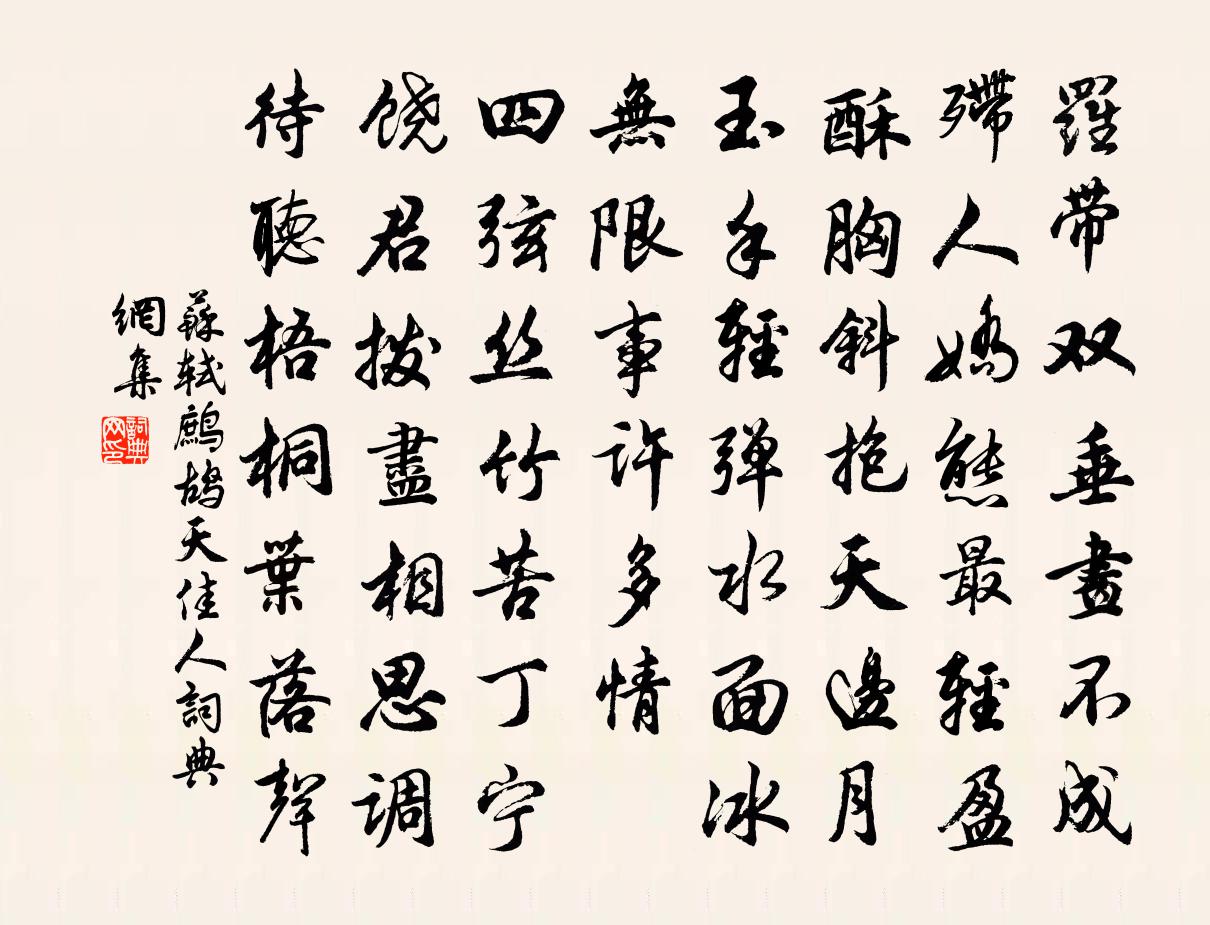 羅带双垂畫不成
殢人嬌態最輕盈
酥胸斜抱天邊月
玉手輕弹水面冰
無限事许多情
四弦丝竹苦丁宁
饶君拨盡相思调
待聽梧桐葉落聲
蘇軾鷓鴣天佳人詞典
網集
詞典
网印